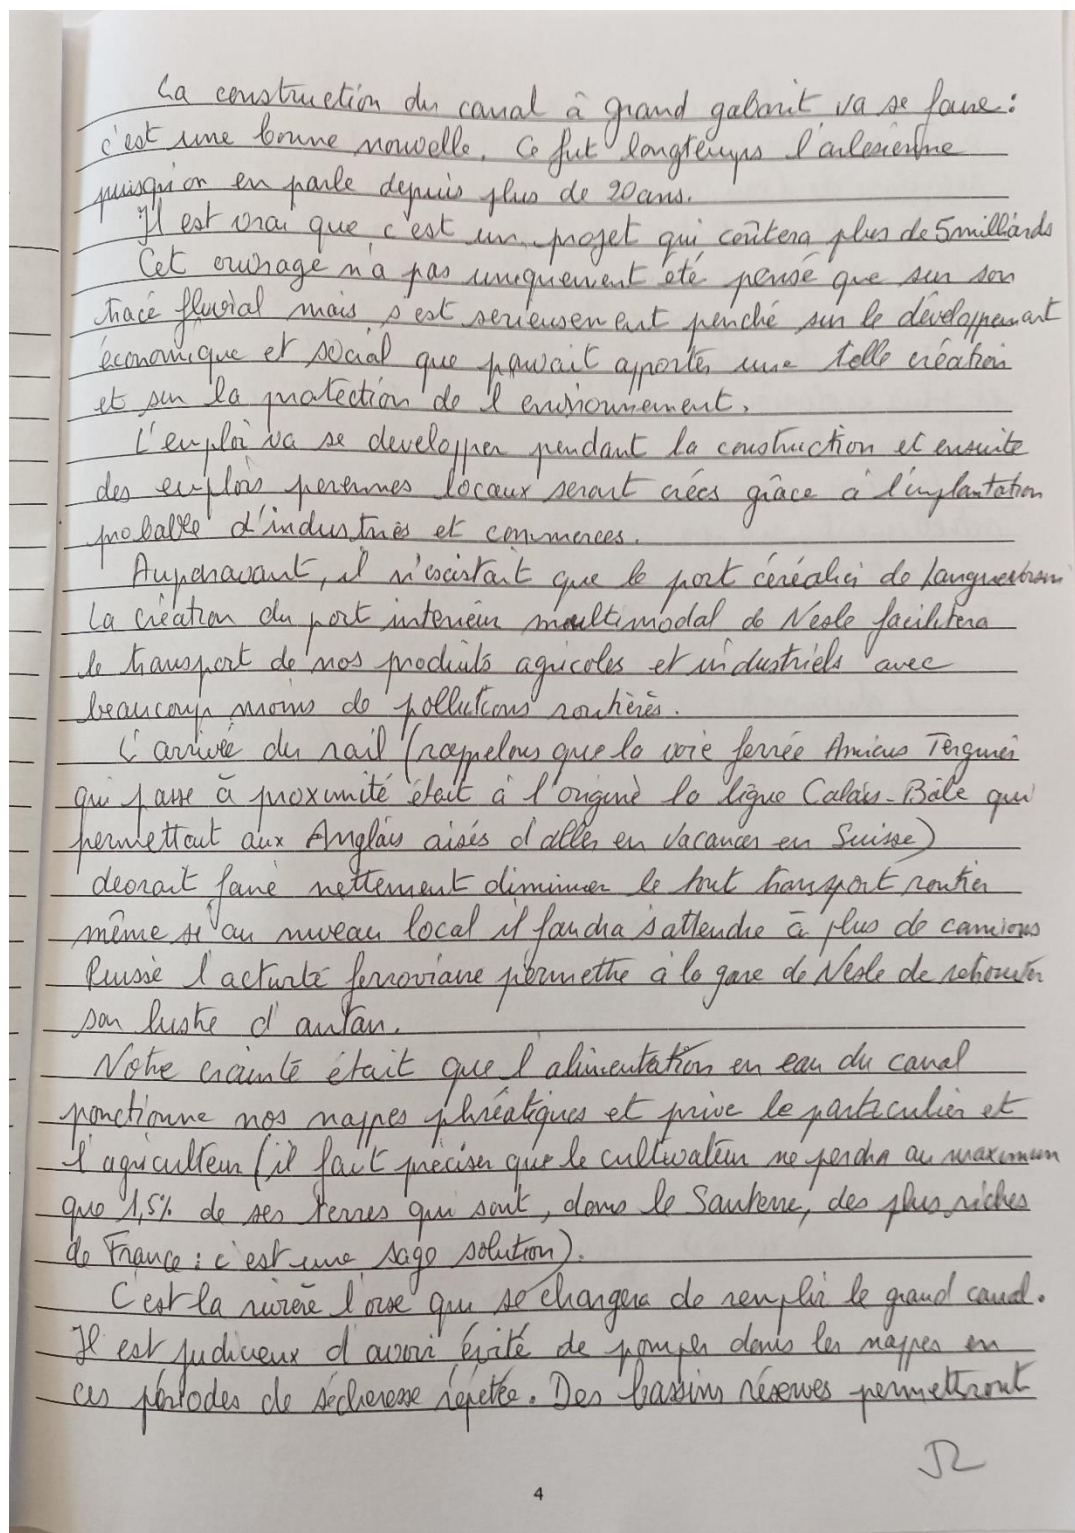 La construction du canal à grand gabarit va se faire :
c'est une bonne nouvelle. Ce fut longtemps l'arlesienne
puisqu'on en parle depuis plus de 20 ans.
Il est vrai que c'est un projet qui coûtera plus de 5 milliards
Cet ouvrage n'a pas uniquement été pensé que sur son
tracé fluvial mais s'est serieusement penché sur le développement
économique et social que pouvait apporter une telle création
et sur la protection de l'environnement.
L'emploi va se developper pendant la construction et ensuite
des emplois perennes locaux seront créés grâce à l'implantation
probable d'industries et commerces.
Auparavant, il n'existait que le port céréalier de Languevoisin
La création du port interieur multimodal de Nesle facilitera
le transport de nos produits agricoles et industriels avec
beaucoup moins de pollutions routières.
L'arrivée du rail (rappelons que la voie ferrée Amiens Tergnier
qui passe à proximité était à l'origine la ligne Calais-Bâle qui
permettait aux Anglais aisés d'aller en vacances en Suisse)
devrait faire nettement diminuer le tout transport routier
même si au niveau local il faudra s'attendre à plus de camions
Puisse l'activité ferroviaire permettre à la gare de Nesle de retrouver
son lustre d'antan.
Notre crainte était que l'alimentation en eau du canal
ponctionne nos nappes phréatiques et prive le particulier et
l'agriculteur (il faut préciser que le cultivateur ne perdra au maximum
que 1,5% de ses terres qui sont, dans le Santerre, des plus riches
de France : c'est une sage solution).
C'est la rivière l'oise qui se chargera de remplir le grand canal.
Il est judicieux d'avoir évité de pomper dans les nappes en
ces périodes de sécheresse répétée. Des bassins réserves permettront
4